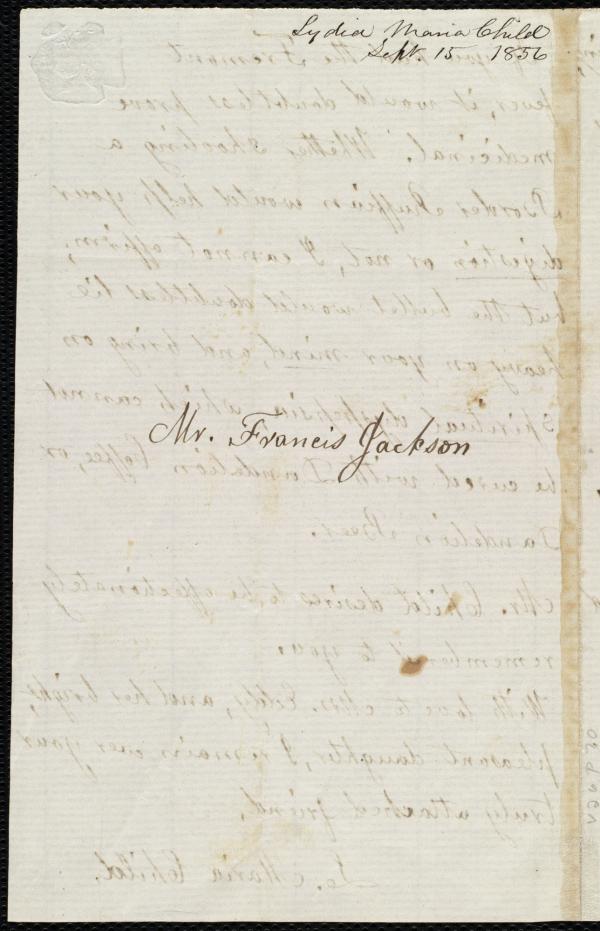 Lydia Maria Child
Sept. 15 1856
the Fremont
fever, it would doubtless prove
medicinal. Whether shooting a
Border Ruffian would help your
digestion or not, I cannot affirm;
but the bullet would doubtless lie
heavy on your mind, and bring on
spiritual dyspepsia which cannot
Mr. Francis Jackson
be cured with Dandelion Coffee, or
Dandelion Beer.
Mr. Child desires to be affectionately
remembered to you.
With love to Mrs. Eddy, and her bright,
pleasant daughter, I remain ever your
truly attached friend,
L. Maria Child.